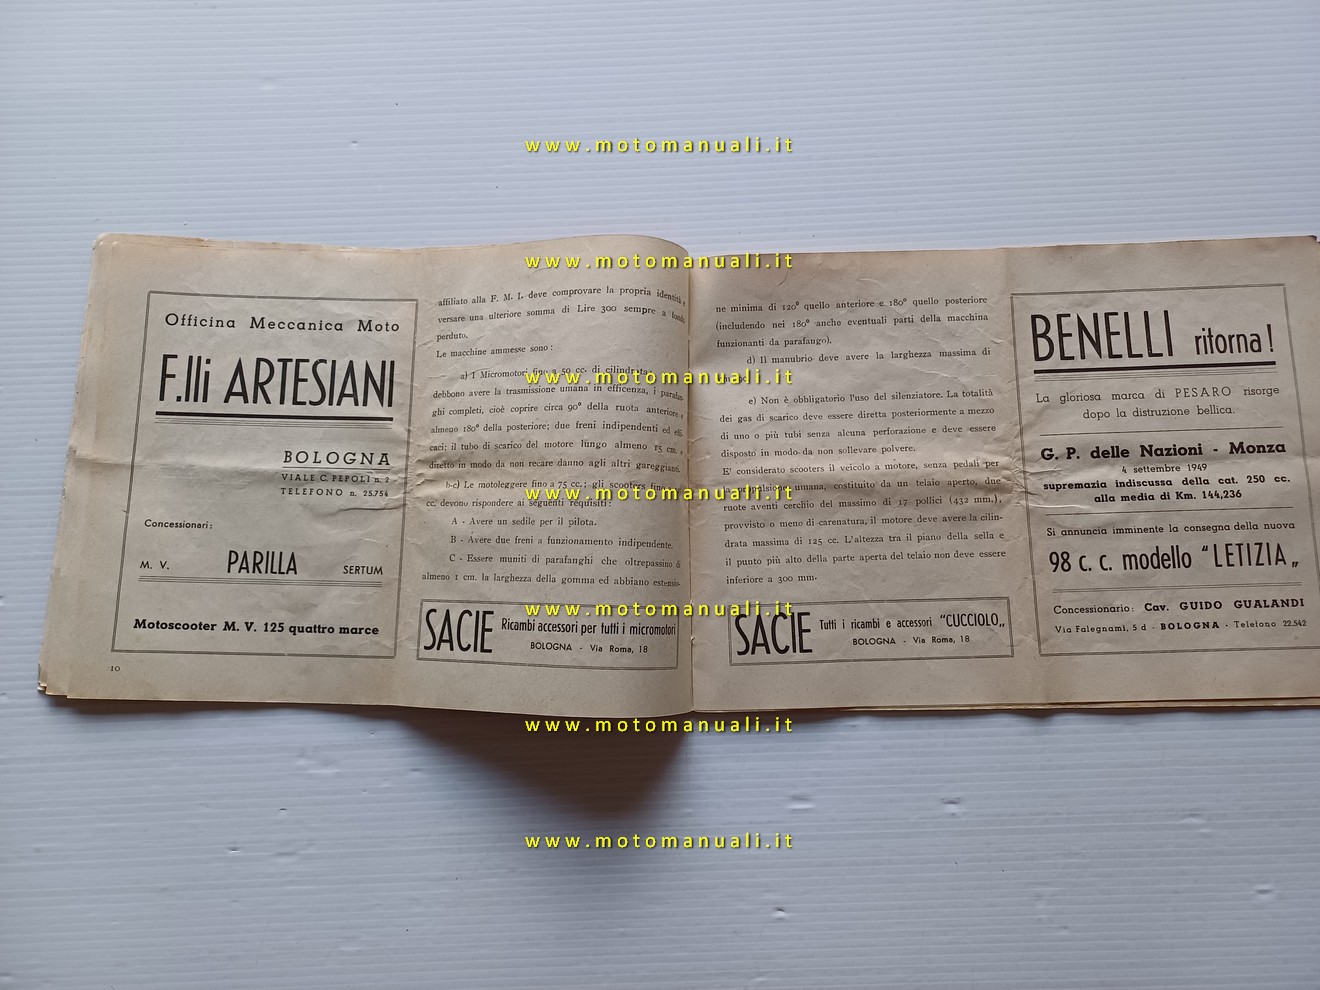 www.motomanuali.it
www.motomanuali.it
www.motomanuali.it
www.motomanuali.it
www.motomanuali.it
www.motomanuali.it
www.motomanuali.it
Officina Meccanica Moto
F.lli ARTESIANI
BOLOGNA
VIALE C. PEPOLI n. 2
TELEFONO n. 25.754
Concessionari:
M. V. PARILLA SERTUM
Motoscooter M. V. 125 quattro marce
10
affiliato alla F. M. I. deve comprovare la propria identità e
versare una ulteriore somma di Lire 300 sempre a fondo
perduto.
Le macchine ammesse sono:
a) I Micromotori fino a 50 cc. di cilindrata
debbono avere la trasmissione umana in efficenza, i parafan-
ghi completi, cioè coprire circa 90° della ruota anteriore e
almeno 180° della posteriore; due freni indipendenti ed effi-
caci; il tubo di scarico del motore lungo almeno 15 cm. e
diretto in modo da non recare danno agli altri gareggianti.
b-c) Le motoleggere fino a 75 cc.; gli scooters fino
cc. devono rispondere ai seguenti requisiti:
A - Avere un sedile per il pilota.
B - Avere due freni a funzionamento indipendente.
C - Essere muniti di parafanghi che oltrepassino di
almeno 1 cm. la larghezza della gomma ed abbiano estensio-
SACIE Ricambi accessori per tutti i micromotori
BOLOGNA - Via Roma, 18
ne minima di 120° quello anteriore e 180° quello posteriore
(includendo nei 180° anche eventuali parti della macchina
funzionanti da parafango).
d) Il manubrio deve avere la larghezza massima di
e) Non è obbligatorio l'uso del silenziatore. La totalità
dei gas di scarico deve essere diretta posteriormente a mezzo
di uno o più tubi senza alcuna perforazione e deve essere
disposto in modo da non sollevare polvere.
E' considerato scooters il veicolo a motore, senza pedali per
la propulsione umana, costituito da un telaio aperto, due
ruote aventi cerchio del massimo di 17 pollici (432 mm.),
provvisto o meno di carenatura, il motore deve avere la cilin-
drata massima di 125 cc. L'altezza tra il piano della sella e
il punto più alto della parte aperta del telaio non deve essere
inferiore a 300 mm.
SACIE Tutti i ricambi e accessori "CUCCIOLO„
BOLOGNA - Via Roma, 18
BENELLI ritorna!
La gloriosa marca di PESARO risorge
dopo la distruzione bellica.
G. P. delle Nazioni - Monza
4 settembre 1949
supremazia indiscussa della cat. 250 cc.
alla media di Km. 144,236
Si annuncia imminente la consegna della nuova
98 c. c. modello "LETIZIA„
Concessionario: Cav. GUIDO GUALANDI
Via Falegnami, 5 d - BOLOGNA - Telefono 22.542